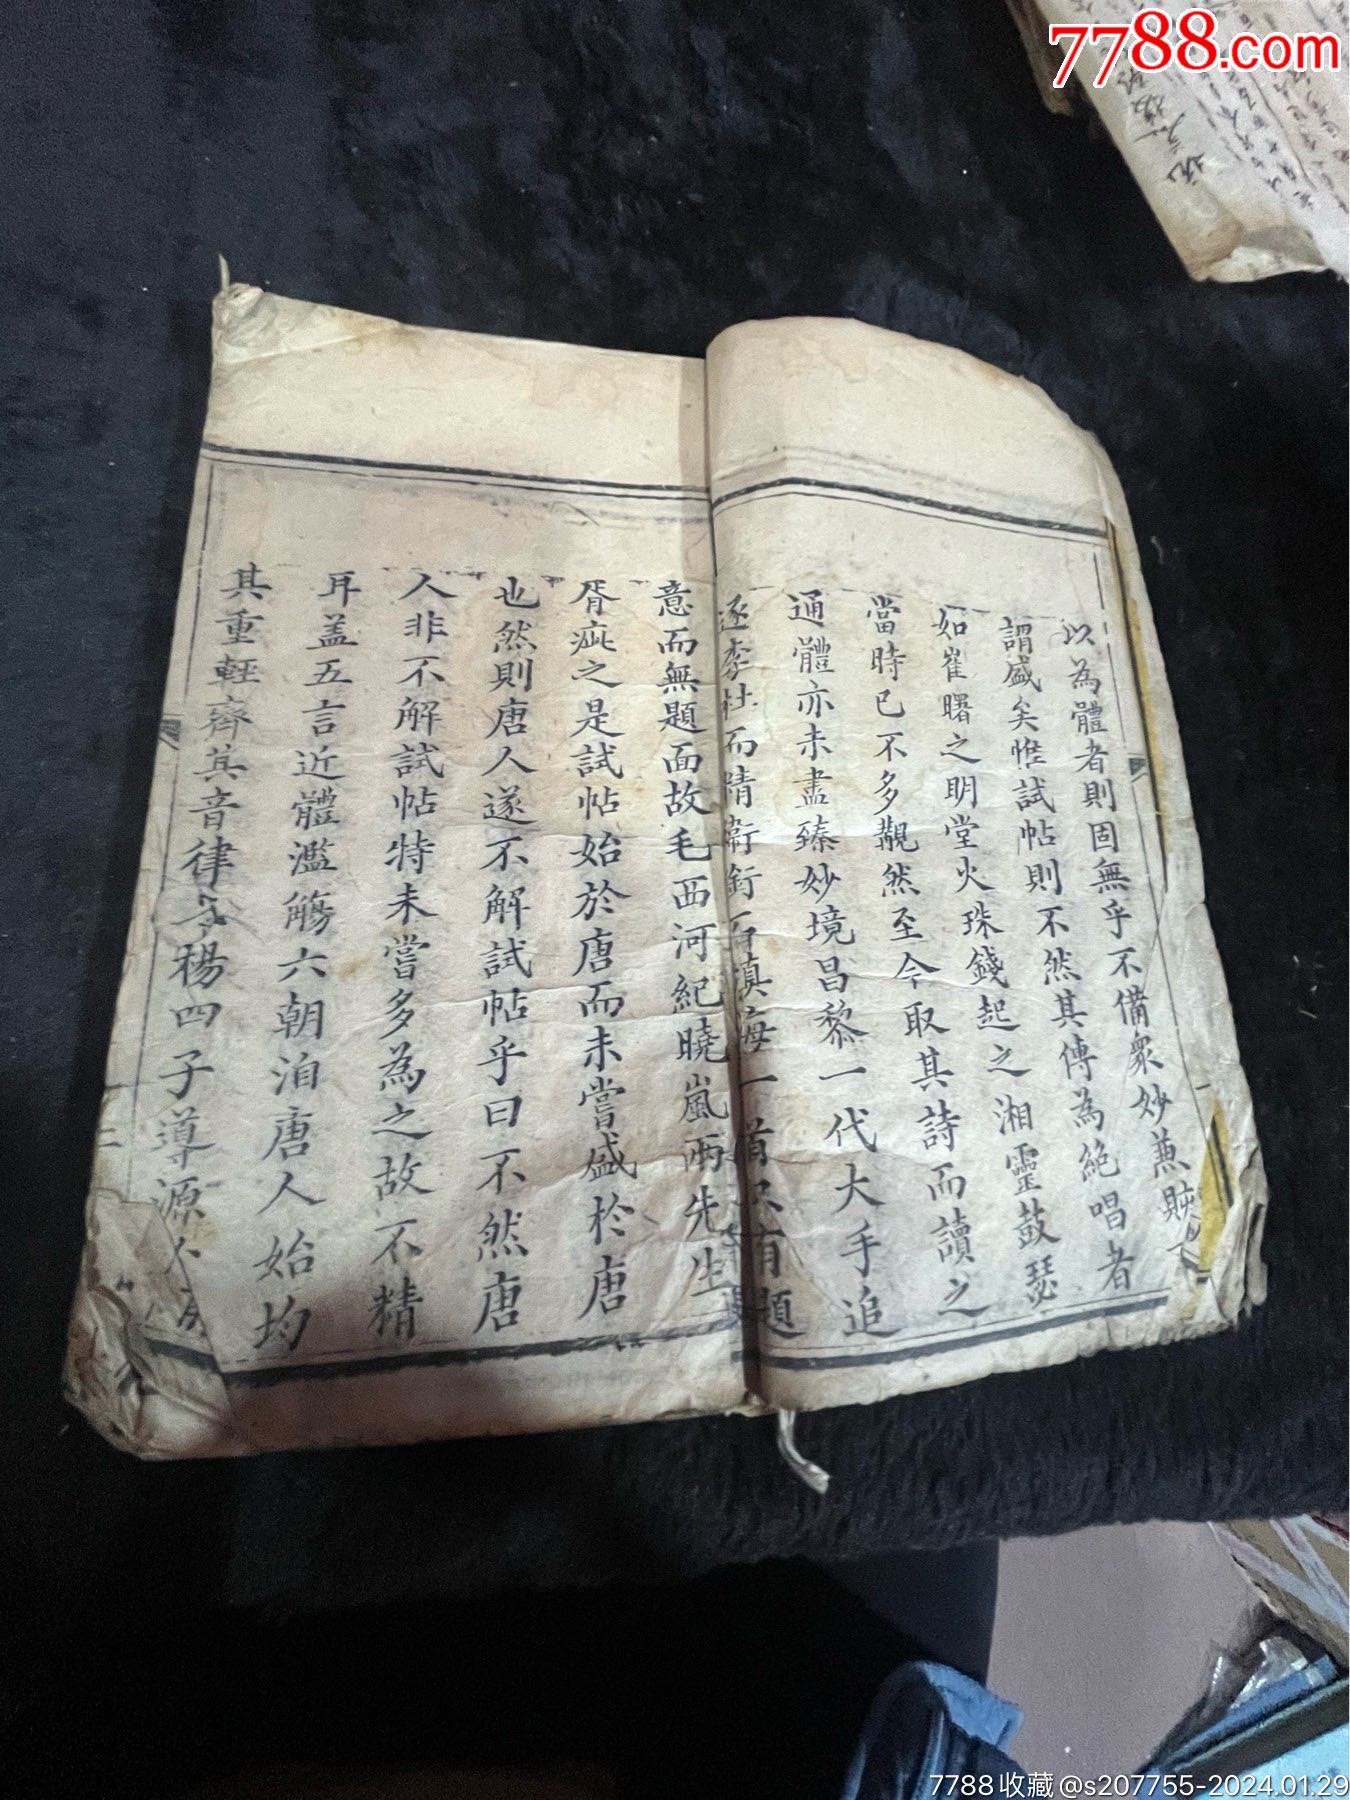 7788.com
以為體者則固無乎不備衆妙兼賅
謂盛矣惟試帖則不然其傳為絕唱者
如崔曙之明堂火珠錢起之湘靈鼓瑟
當時已不多覯然至今取其詩而讀之
通體亦未盡臻妙境昌黎一代大手追
逐李杜而精衛銜石填海一首只有題
意而無題面故毛西河紀曉嵐兩先生
胥疵之是試帖始於唐而未嘗盛於唐
也然則唐人遂不解試帖乎曰不然唐
人非不解試帖特未嘗多為之故不精
耳盖五言近體濫觴六朝洎唐人始均
其重輕齊其音律 楊四子導源
三
7788收藏@s207755-2024.01.29